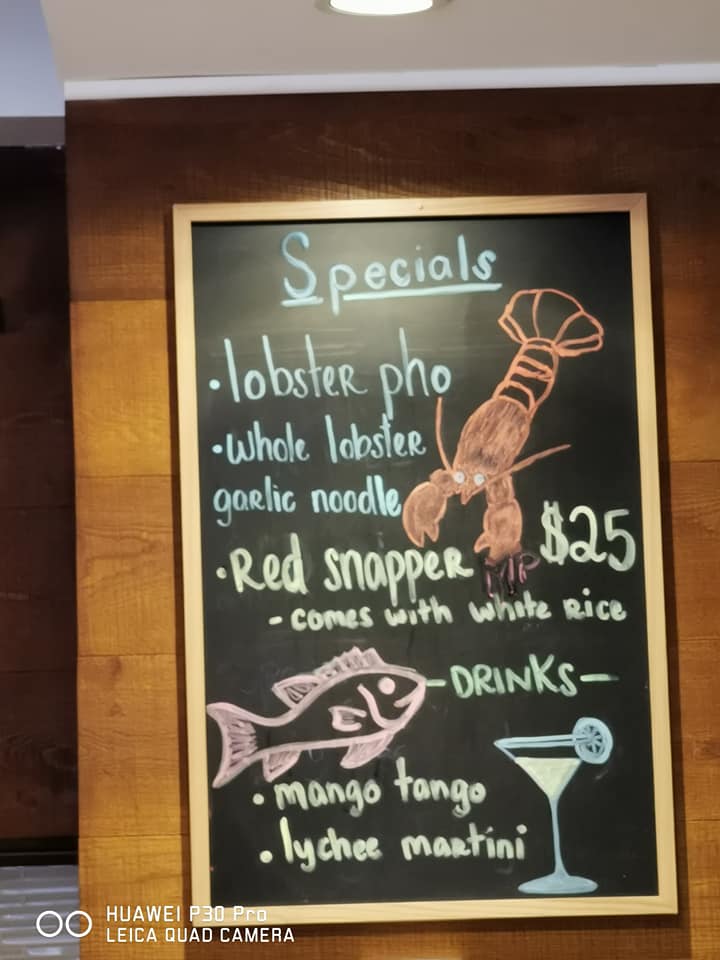 Specials
• lobster pho
• whole lobster
garlic noodle
$25
• Red snapper MP
- comes with white rice
- DRINKS -
• mango tango
• lychee martini
HUAWEI P30 Pro
LEICA QUAD CAMERA